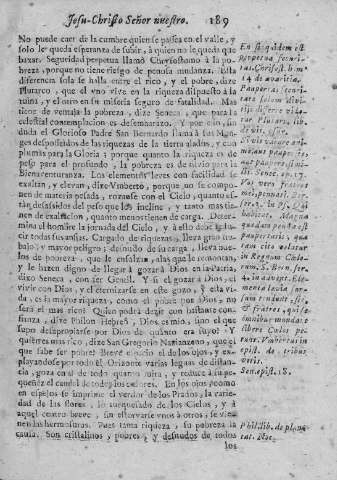 Jesu-Christo Señor nuestro. 189
No puede caer de la cumbre quien se passea en el valle, y
solo le queda esperanza de subir, à quien no le queda que
baxar. Seguridad perpetua llamò Chrysostomo à la po-
breza, porque no tiene riesgo de penosa mudanza. Esta
diferencia sola se halla entre el rico, y el pobre, dize
Plutarco, que el vno vive en la riqueza dispuesto à la
ruina, y el otro en su miseria seguro de fatalidad. Mas
tiene de ventaja la pobreza, dize Seneca, que para la
celestial contemplacion es desembarazo. Y por esso, sin
duda el Glorioso Padre San Bernardo llama à sus Mon-
ges desposseidos de las riquezas de la tierra alados, y con
plumas para la Gloria; porque quanto la riqueza es de
peso para el profundo, la pobreza es de alivio para la
Bienaventuranza. Los elementos leves con facilidad se
exaltan, y elevan, dize Vmberto, porque no se compo-
nen de materia pesada, rozanse con el Cielo, quanto es-
tàn desasidos del peso que los incline, y tanto mas tie-
nen de exaltacion, quanto menos tienen de carga. Deter-
mina el hombre la jornada del Cielo, y à ello debe
todas sus ansias. Cargado de riquezas, lleva gran tra-
bajo, y mayor peligro; desnudo de su carga, lleva bue-
los de pobreza, que le ensalzan, alas que le remontan,
y le hazen digno de llegar à gozar à Dios en la Patria,
dixo Seneca, con ser Gentil. Y si el gozar à Dios, el
vivir con Dios, y el eternizarse en este gozo, y esta vi-
da, es la mayor riqueza, como el pobre por Dios, no
serà el mas rico? Quien podrà dezir con bastante con-
fianza, dize Philon Hebreo, Dios es mio, sino el que
supo desapropiarse por Dios de quanto era suyo? Y
quieres mas rico, dize San Gregorio Nazianzeno, que el
que sabe ser pobre? Breve espacio el de los ojos, y ex-
playandose por todo el Orizonte varias leguas de distan-
cia, goza en èl de todo quanto mira, y reduce à su pe-
queñez el caudal de todos los colores. En los ojos como
en espejos se imprime el verdor de los Prados, la varie-
dad de las flores, lo turquesado de los Cielos, y à
aquel centro breve, sin estorvarse vnos à otros, se vie-
nen las hermosuras. Pues tanta riqueza, su pobreza la
causa. Son cristalinos, pobres, y desnudos de todos
los
En siquidem est
perpetua securi-
tas. Chrisost. hom.
14. de avaritia.
Pauperias securi-
tate solum divi-
tijs differre vide-
tur. Plutarc. lib.
de vit.
Si vis vacare ani-
mo aut pauper sis,
aut pauperi simi-
lis. Senec. ep. 17.
Vos vero fratres
pennati, Bern.
ser. 2. in Ps. Qui
habitat. Magna
quædam penna est
paupertatis, qua
tam cito volatur
in Regnum Cœlo-
rum. S. Bern. ser.
4. in advent. Ele-
menta levia sur-
sum tendunt, sic,
&
liberè Cælos pe-
tunt. Vmbertus in
epist. de tribus
votis.
Sen. epist. 18.
Phil. lib. de plan-
tat. Noe.